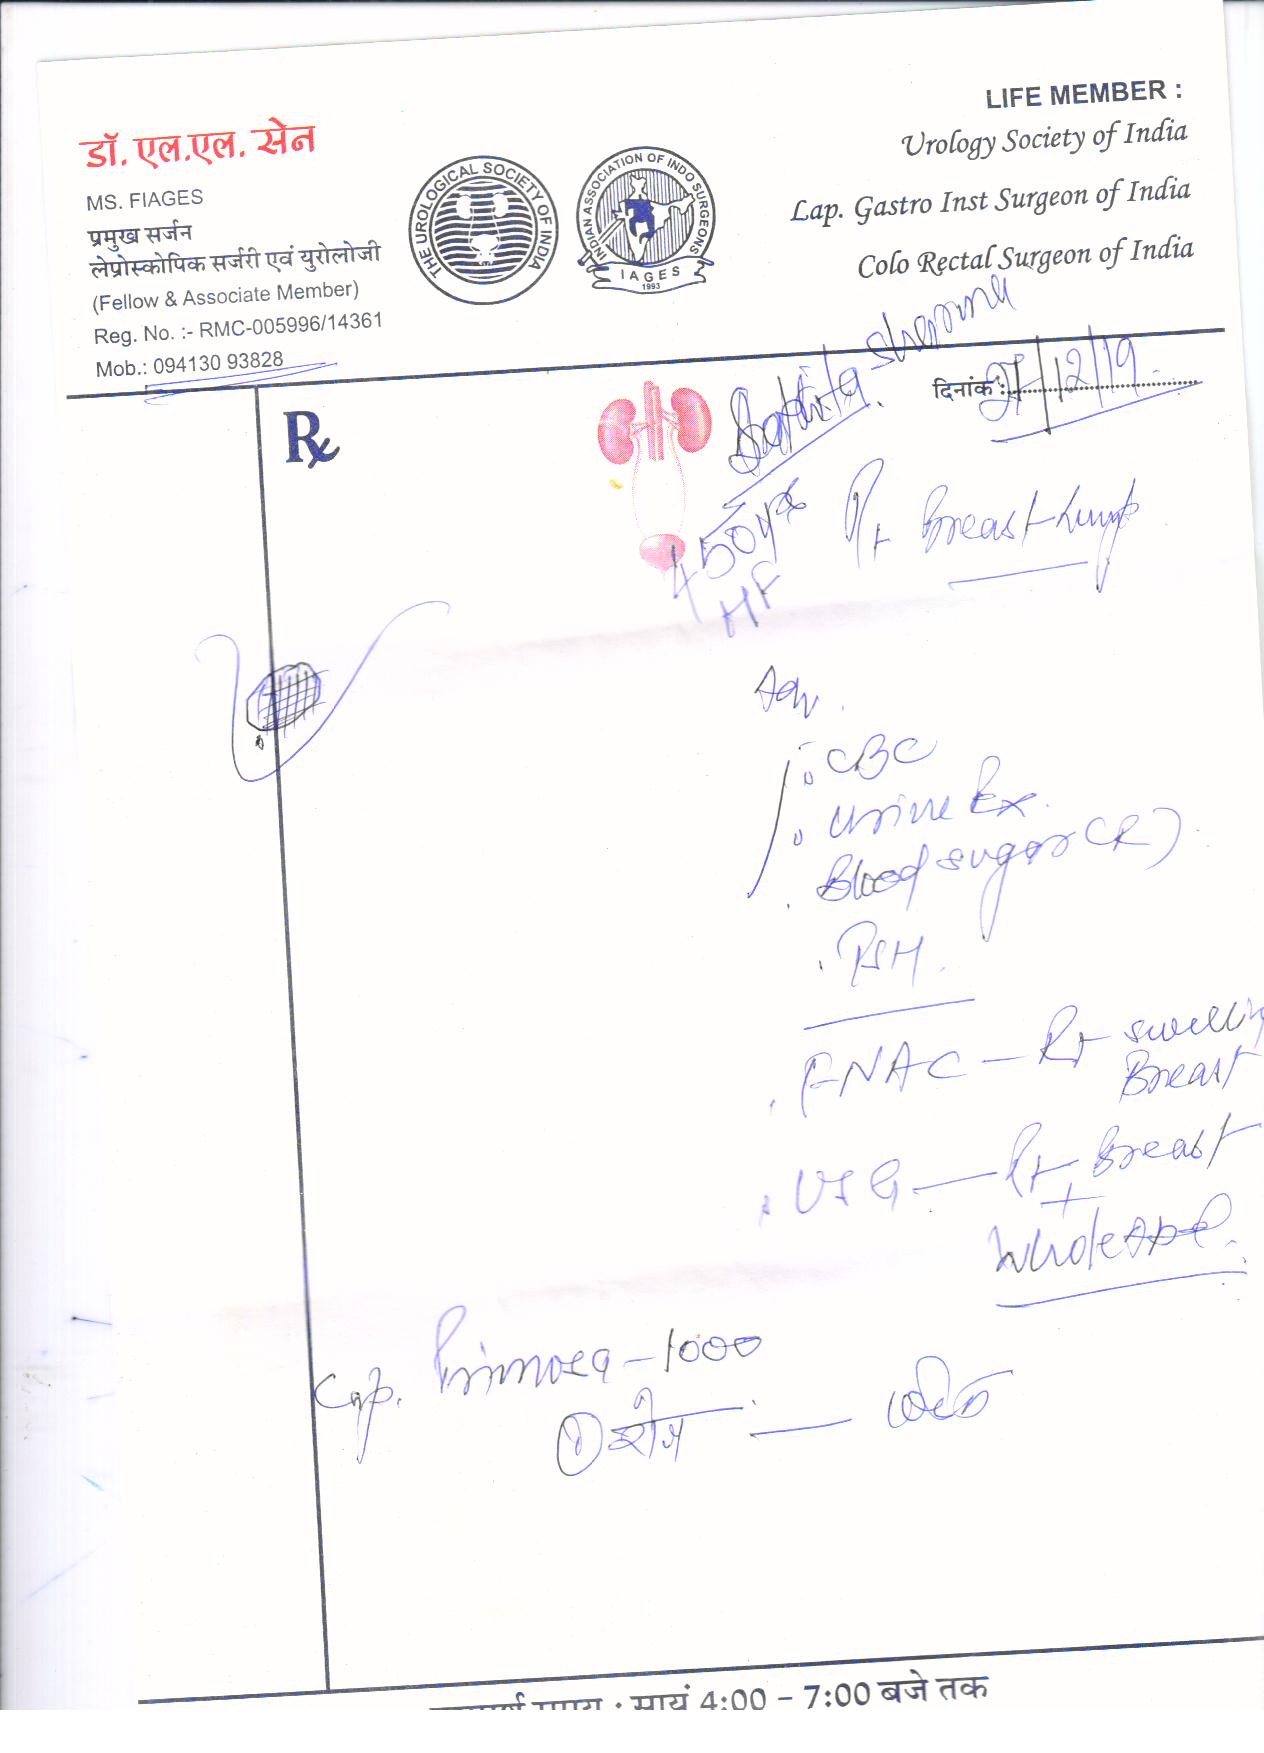 डॉ. एल.एल. सेन
MS. FIAGES
प्रमुख सर्जन
लेप्रोस्कोपिक सर्जरी एवं युरोलोजी
(Fellow & Associate Member)
Reg. No. :- RMC-005996/14361
Mob.: 094130 93828
THE UROLOGICAL SOCIETY OF INDIA
INDIAN ASSOCIATION OF INDO SURGEONS
IAGES
1993
LIFE MEMBER :
Urology Society of India
Lap. Gastro Inst Surgeon of India
Colo Rectal Surgeon of India
Sharma
दिनांक :
/12/19
Rx
Rt Breast Lump
Adv.
CBC
Urine Ex.
Blood sugar (R)
FNAC - Rt swelling
Breast
USG - Rt Breast
+
Whole Abd.
Cap. Primosa - 1000
① रोज
: सायं 4:00 – 7:00 बजे तक